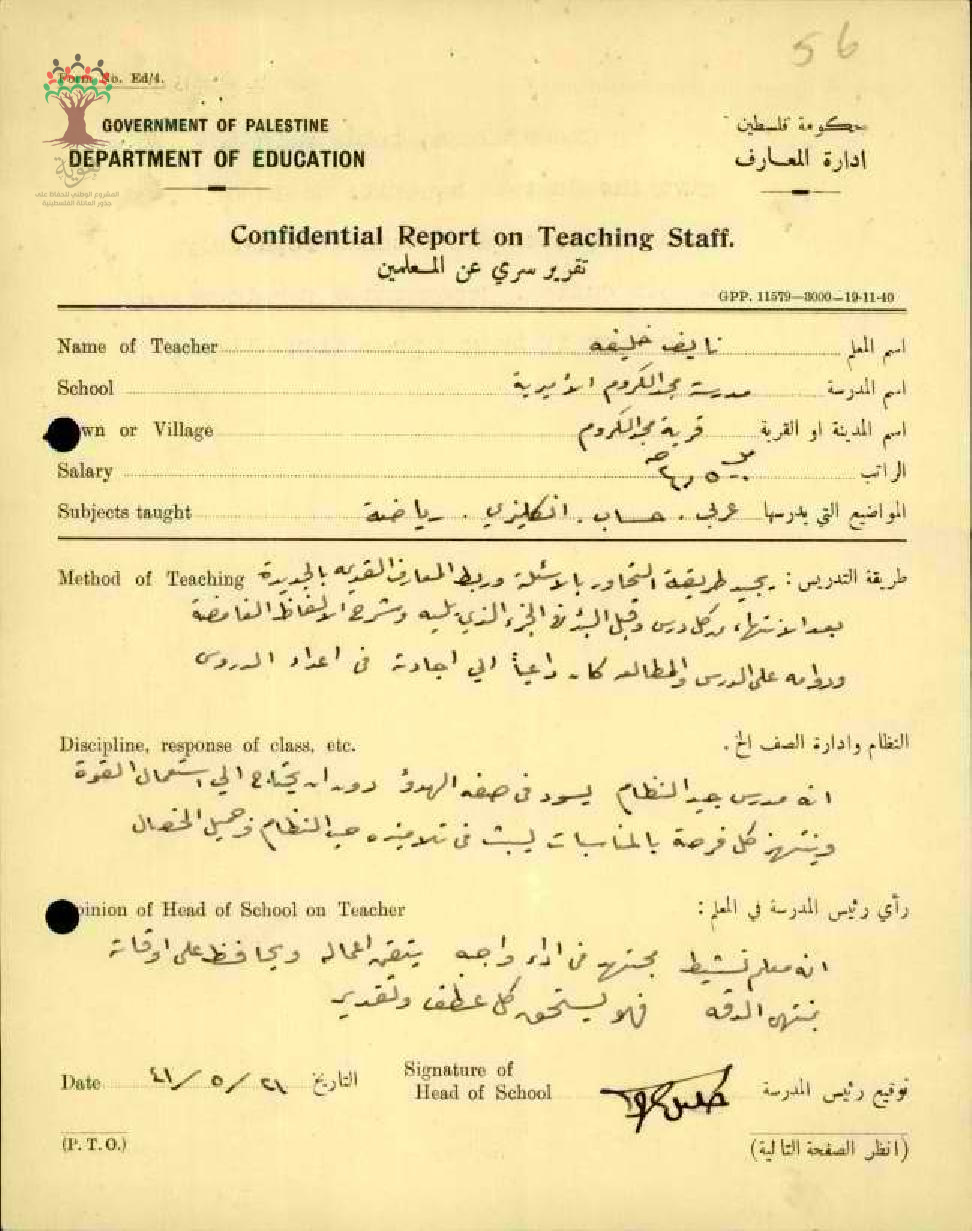 56
Form No. Ed/4.
هوية
المشروع الوطني للحفاظ على
جذور العائلة الفلسطينية
GOVERNMENT OF PALESTINE
DEPARTMENT OF EDUCATION
حكومة فلسطين
ادارة المعارف
Confidential Report on Teaching Staff.
تقرير سري عن المعلمين
GPP. 11579—3000—19-11-40
Name of Teacher نايف خليفه اسم المعلم
School مدرسة مجد الكروم الأميرية اسم المدرسة
own or Village قرية مجد الكروم اسم المدينة او القرية
Salary الراتب
Subjects taught عربي . حساب . انكليزي . رياضة المواضيع التي يدرسها
Method of Teaching طريقة التدريس : يجيد طريقة التحاور بالاسئلة وربط المعارف القديمه بالجديدة
بعد الانتهاء من كل درس وقبل البدء في الجزء الذي يليه وشرح الالفاظ الغامضة
ودوامه على الدرس والمطالعه كان داعياً الى اجادته في اعداد الدروس
Discipline, response of class, etc. النظام وادارة الصف الخ .
انه مدرس جيد النظام يسود في صفه الهدؤ دون ان يحتاج الى استعمال القوة
وينتهز كل فرصة بالمناسبات ليبث في تلاميذه حب النظام وجميل الخصال
pinion of Head of School on Teacher رأي رئيس المدرسة في المعلم :
انه معلم نشيط مجتهد في اداء واجبه يتقن اعماله ويحافظ على اوقاته
بمنتهى الدقه فهو يستحق كل عطف وتقدير
Date ٢١ / ٥ / ٤١ التاريخ Signature of Head of School توقيع رئيس المدرسة
(P. T. O.) (انظر الصفحة التالية)